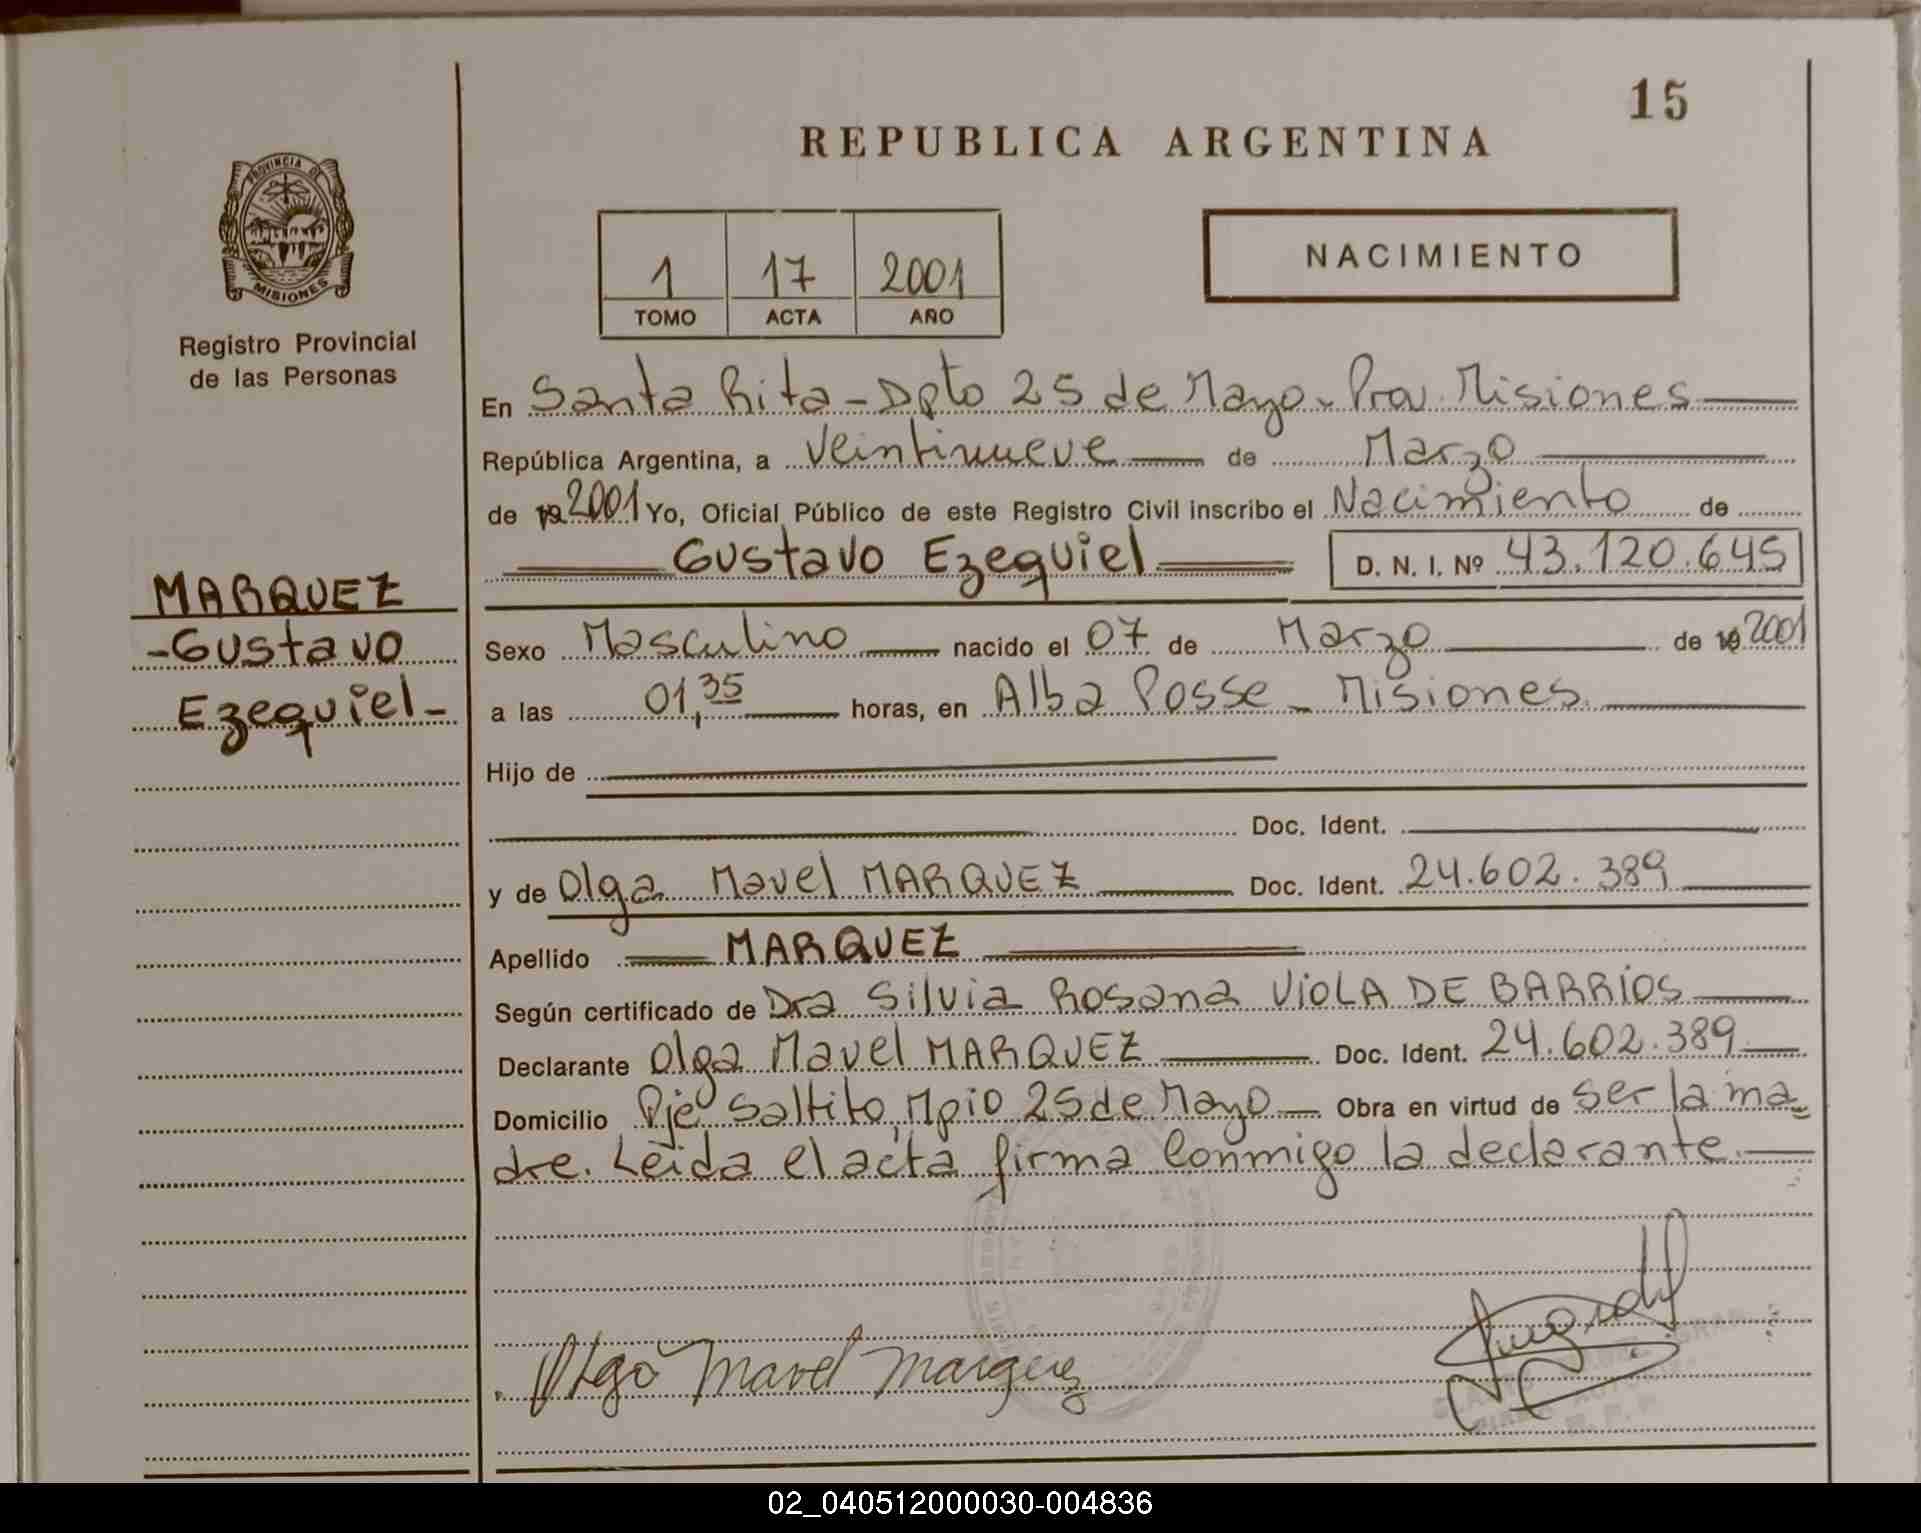 15
REPUBLICA ARGENTINA
PROVINCIA DE
MISIONES
Registro Provincial
de las Personas
1 17 2001
TOMO ACTA AÑO
NACIMIENTO
En Santa Rita - Dpto 25 de Mayo - Prov. Misiones
República Argentina, a Veintinueve de Marzo
de 19 2001 Yo, Oficial Público de este Registro Civil inscribo el Nacimiento de
Gustavo Ezequiel D. N. I. Nº 43.120.645
MARQUEZ
- Gustavo
Ezequiel -
Sexo Masculino nacido el 07 de Marzo de 19 2001
a las 01,35 horas, en Alba Posse - Misiones.
Hijo de
Doc. Ident.
y de Olga Mavel MARQUEZ Doc. Ident. 24.602.389
Apellido MARQUEZ
Según certificado de Dra Silvia Rosana VIOLA DE BARRIOS
Declarante Olga Mavel MARQUEZ Doc. Ident. 24.602.389
Domicilio Pje Saltito, Mpio 25 de Mayo Obra en virtud de ser la ma
dre. Leida el acta firma conmigo la declarante.
Olga Mavel Marquez
02_040512000030-004836